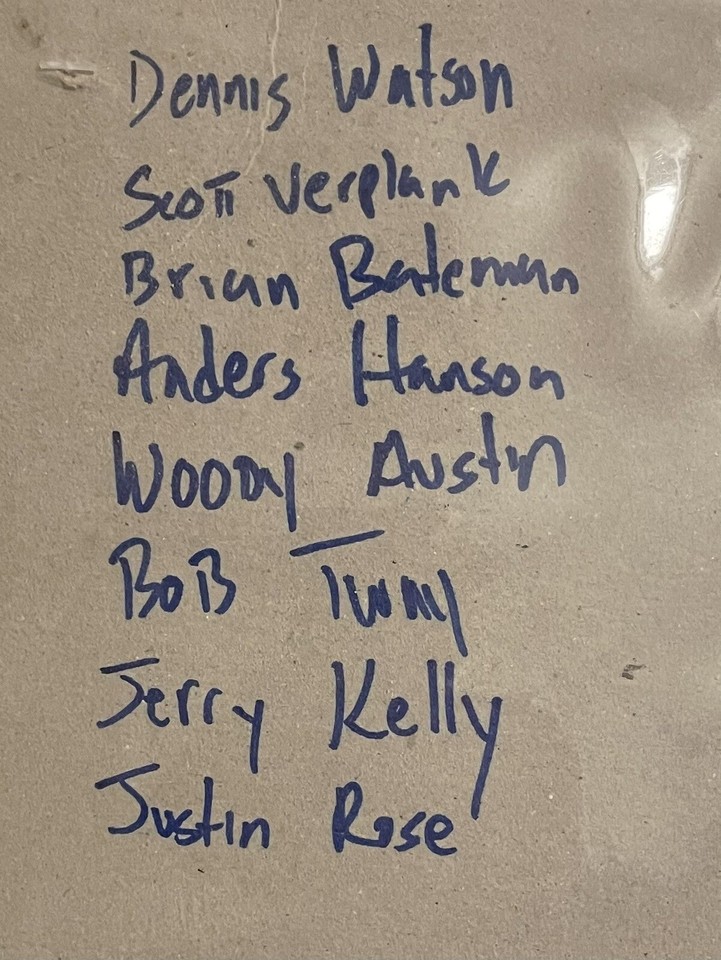 Dennis Watson
Scott Verplank
Brian Bateman
Anders Hanson
Woody Austin
BoB Tway
Jerry Kelly
Justin Rose